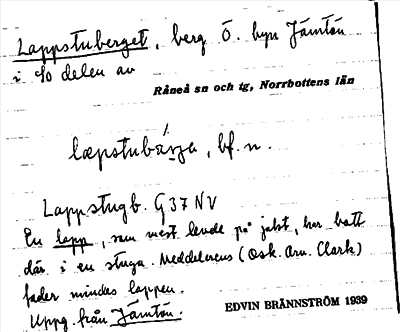 Lappstuberget, berg Ö. byn Jämtön
i So delen av
Råneå sn och tg, Norrbottens län
læpstubärja, bf. n.
Lappstugb. G 37 NV
En lapp, som mest levde på jakt, har haft
där i en stuga. Meddelarens (Osk. Arv. Clark)
fader mindes lappen.
Uppg. från Jämtön.
EDVIN BRÄNNSTRÖM 1939